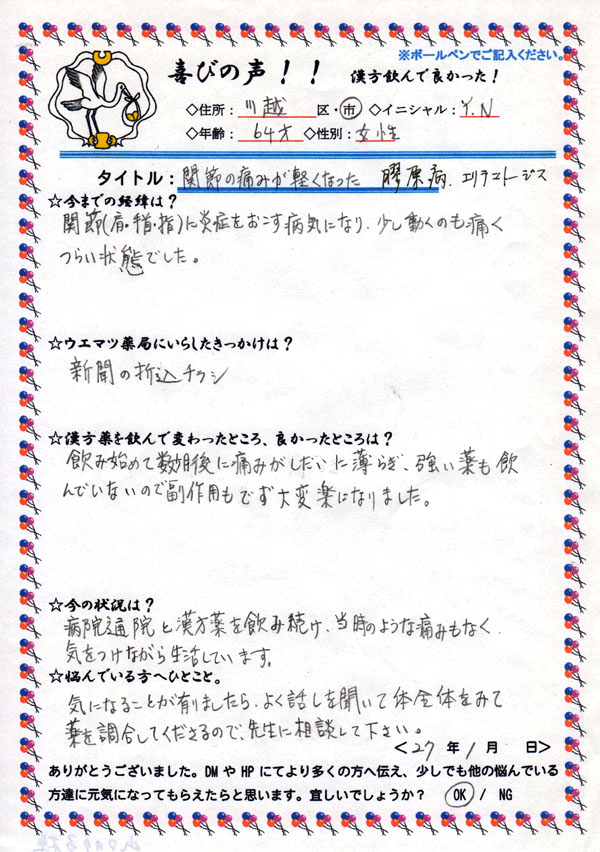 ※ボールペンでご記入ください。
喜びの声！！ 漢方飲んで良かった！
◇住所：川越 区・市 ◇イニシャル：Y.N
◇年齢： 64才 ◇性別：女性
タイトル：関節の痛みが軽くなった 膠原病．エリテマトージス
☆今までの経緯は？
関節(肩・手首・指)に炎症をおこす病気になり、少し動くのも痛く
つらい状態でした。
☆ウエマツ薬局にいらしたきっかけは？
新聞の折込チラシ
☆漢方薬を飲んで変わったところ、良かったところは？
飲み始めて数ヶ月後に痛みがしだいに薄らぎ、強い薬も飲
んでいないので副作用もでず大変楽になりました。
☆今の状況は？
病院通院と漢方薬を飲み続け、当時のような痛みもなく
気をつけながら生活しています。
☆悩んでいる方へひとこと。
気になることが有りましたら、よく話しを聞いて体全体をみて
薬を調合してくださるので、先生に相談して下さい。
＜27 年 1 月 日＞
ありがとうございました。DM や HP にてより多くの方へ伝え、少しでも他の悩んでいる
方達に元気になってもらえたらと思います。宜しいでしょうか？ OK / NG